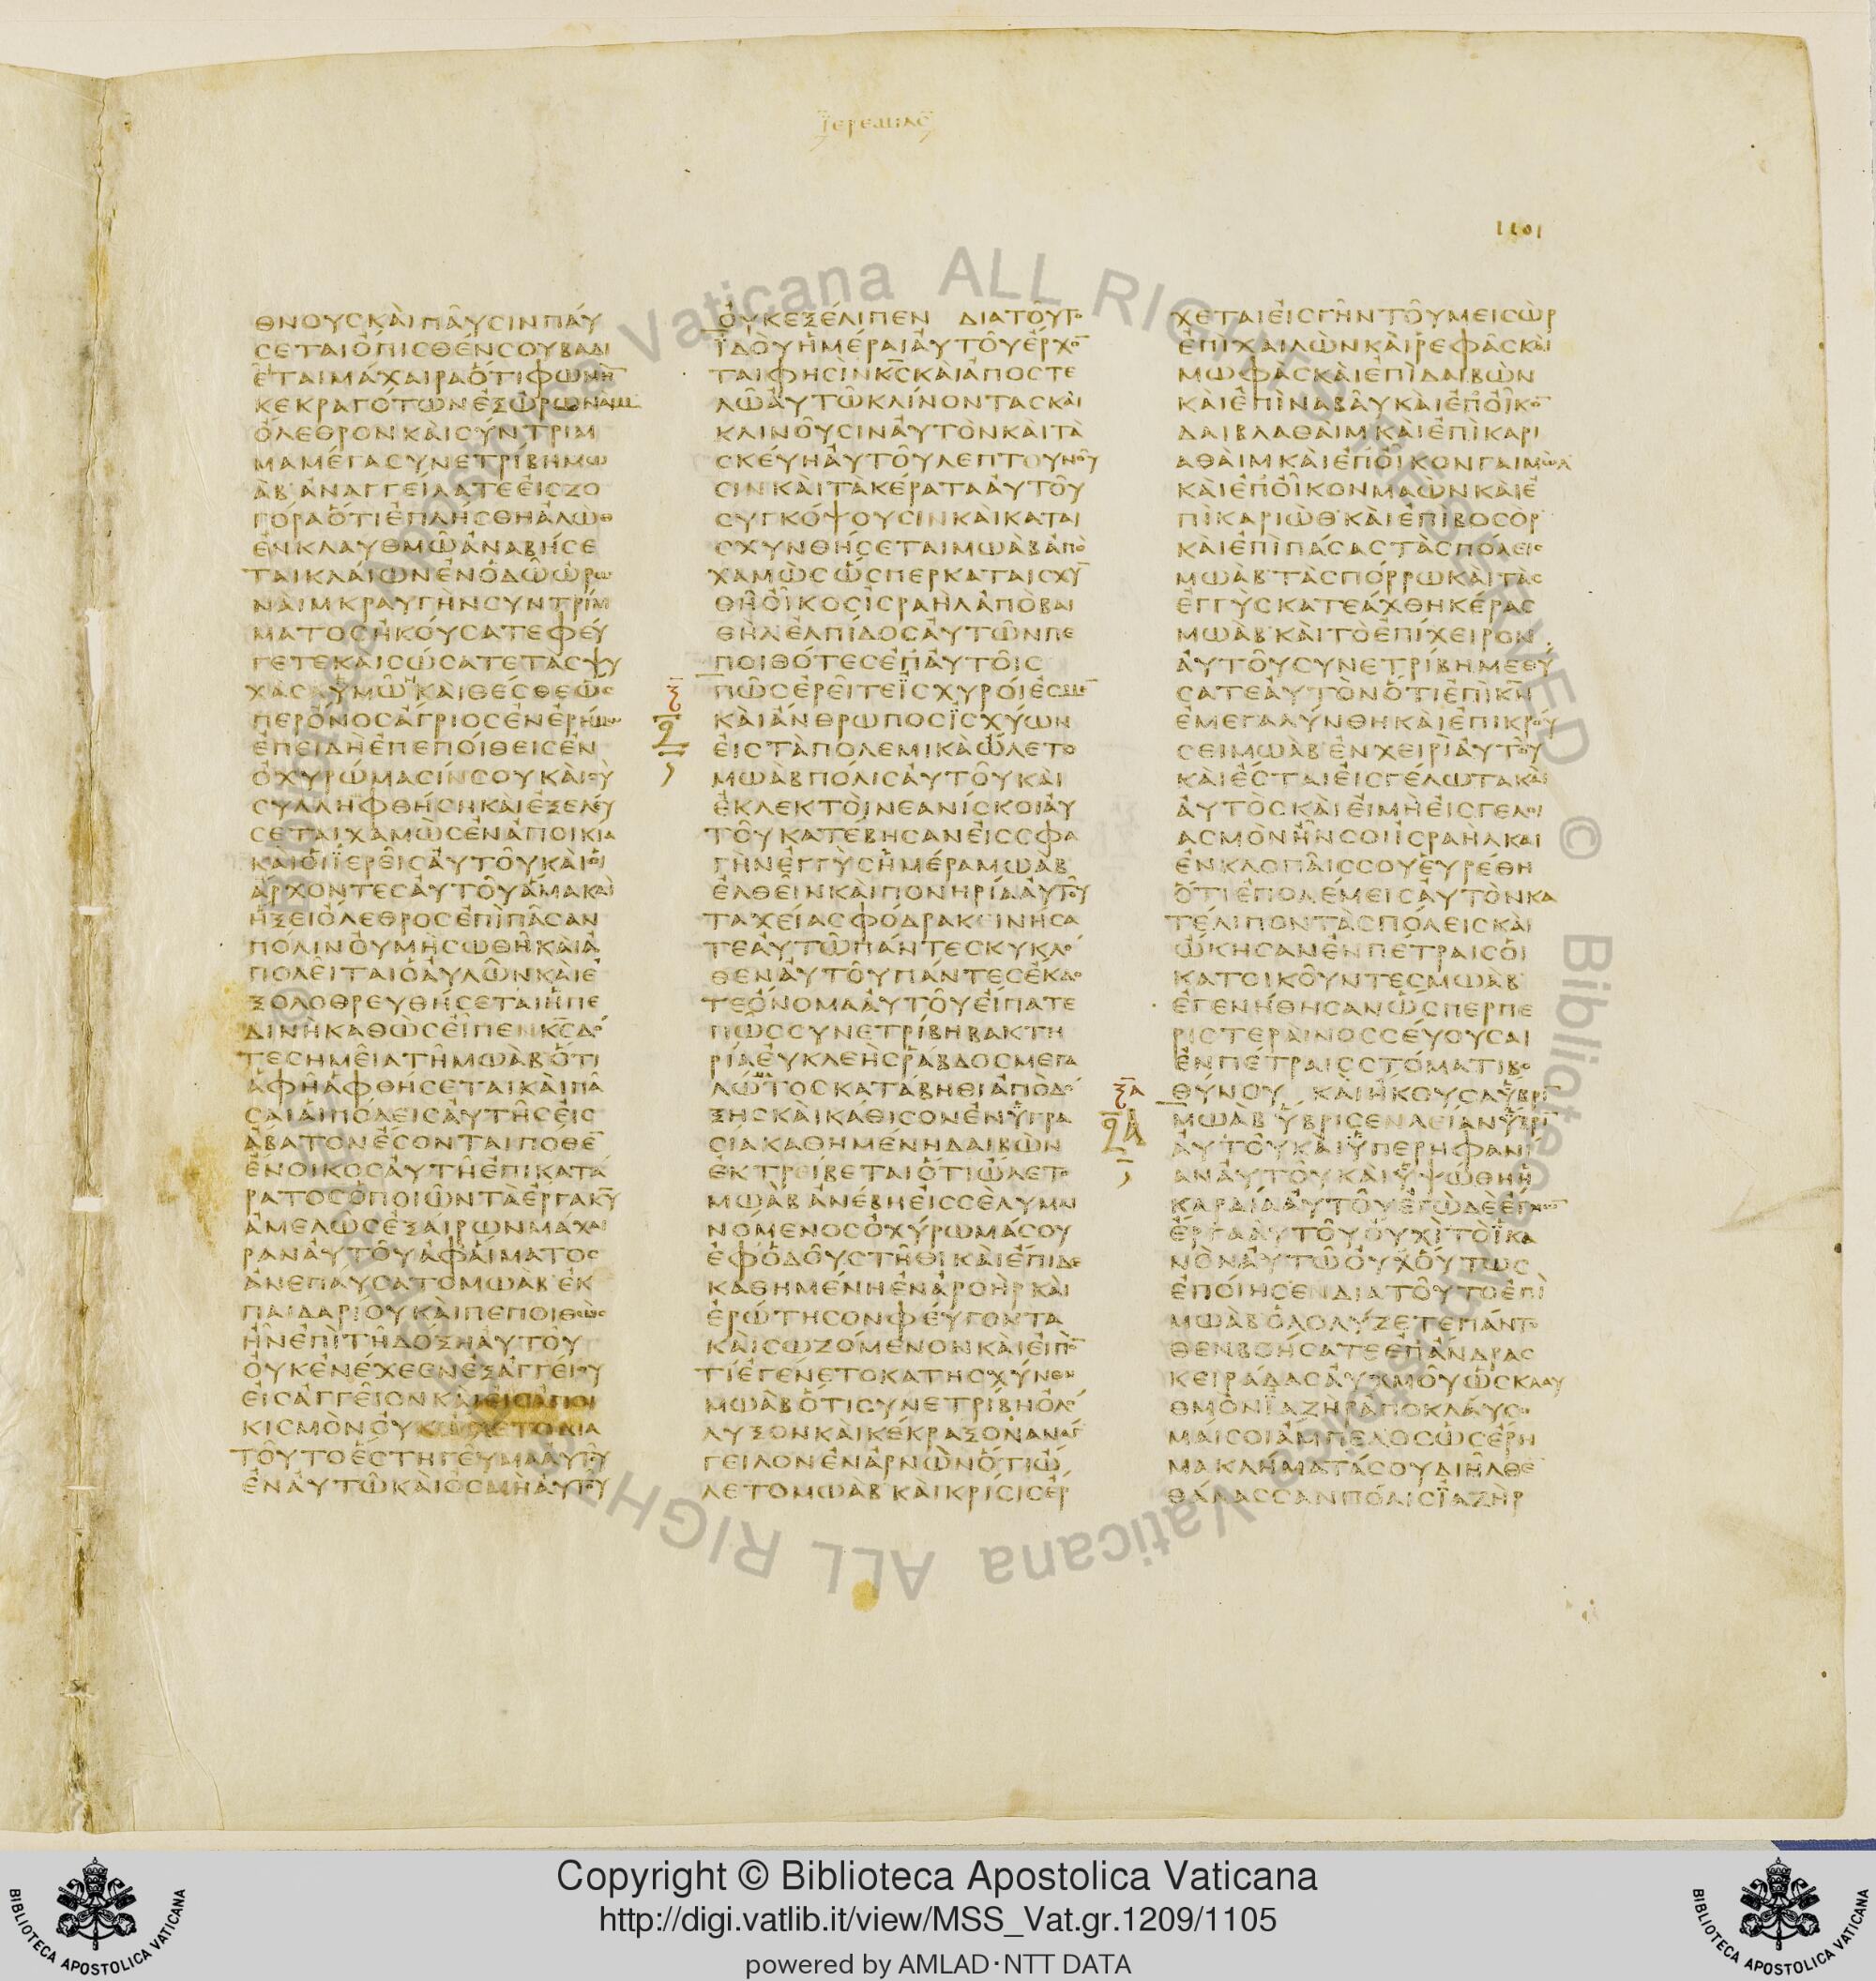 ϊερεμιας
1101
ΘΝΟΥϹΚΑΙΠΑΥϹΙΝΠΑΥ
ϹΕΤΑΙΟΠΙϹΘΕΝϹΟΥΒΑΔΙ
ΕΙΤΑΙΜΑΧΑΙΡΑΟΤΙΦΩΝΗ̅
ΚΕΚΡΑΓΟΤΩΝΕΞΩΡΩΝΑΙΜ
ΟΛΕΘΡΟΝΚΑΙϹΥΝΤΡΙΜ
ΜΑΜΕΓΑϹΥΝΕΤΡΙΒΗΜΩ
ΑΒ ΑΝΑΓΓΕΙΛΑΤΕΕΙϹΖΟ
ΓΟΡΑΟΤΙΕΠΛΗϹΘΗΑΛΩΘ
ΕΝΚΛΑΥΘΜΩΑΝΑΒΗϹΕ
ΤΑΙΚΛΑΙΩΝΕΝΟΔΩΩΡΩ
ΝΑΙΜΚΡΑΥΓΗΝϹΥΝΤΡΙΜ
ΜΑΤΟϹΗΚΟΥϹΑΤΕΦΕΥ
ΓΕΤΕΚΑΙϹΩϹΑΤΕΤΑϹΨΥ
ΧΑϹΥΜΩ̅ΚΑΙΕϹΕϹΘΕΩϹ
ΠΕΡΟΝΟϹΑΓΡΙΟϹΕΝΕΡΗΜΩ
ΕΠΕΙΔΗΕΠΕΠΟΙΘΕΙϹΕΝ
ΟΧΥΡΩΜΑϹΙΝϹΟΥΚΑΙϹΥ
ϹΥΛΛΗΦΘΗϹΗΚΑΙΕΞΕΛΕΥ
ϹΕΤΑΙΧΑΜΩϹΕΝΑΠΟΙΚΙΑ
ΚΑΙΟΙΪΕΡΕΙϹΑΥΤΟΥΚΑΙΟΙ
ΑΡΧΟΝΤΕϹΑΥΤΟΥΑΜΑΚΑΙ
ΗΞΕΙΟΛΕΘΡΟϹΕΠΙΠΑϹΑΝ
ΠΟΛΙΝΟΥΜΗϹΩΘΗΚΑΙΑ
ΠΟΛΕΙΤΑΙΟΑΥΛΩΝΚΑΙΕ
ΞΟΛΟΘΡΕΥΘΗϹΕΤΑΙΗΠΕ
ΔΙΝΗΚΑΘΩϹΕΙΠΕΝΚ̅Ϲ̅ΔΟ
ΤΕϹΗΜΕΙΑΤΗΜΩΑΒΟΤΙ
ΑΦΗΑΦΘΗϹΕΤΑΙΚΑΙΠΑ
ϹΑΙΑΙΠΟΛΕΙϹΑΥΤΗϹΕΙϹ
ΑΒΑΤΟΝΕϹΟΝΤΑΙΠΟΘΕ̅
ΕΝΟΙΚΟϹΑΥΤΗΕΠΙΚΑΤΑ
ΡΑΤΟϹΟΠΟΙΩΝΤΑΕΡΓΑΚ̅Υ̅
ΑΜΕΛΩϹΕΞΑΙΡΩΝΜΑΧΑΙ
ΡΑΝΑΥΤΟΥΑΦΑΙΜΑΤΟϹ
ΑΝΕΠΑΥϹΑΤΟΜΩΑΒ ΕΚ
ΠΑΙΔΑΡΙΟΥΚΑΙΠΕΠΟΙΘΩϹ
ΗΝΕΠΙΤΗΔΟΞΗΑΥΤΟΥ
ΟΥΚΕΝΕΧΕΕΝΕΞΑΓΓΕΙΟΥ
ΕΙϹΑΓΓΕΙΟΝΚΑΙΕΙϹΑΠΟΙ
ΚΙϹΜΟΝΟΥΚΩΧΕΤΟΔΙΑ
ΤΟΥΤΟΕϹΤΗΓΕΥΜΑΑΥΤΟΥ
ΕΝΑΥΤΩΚΑΙΟϹΜΗΑΥΤΟΥ
ΟΥΚΕΞΕΛΙΠΕΝ ΔΙΑΤΟΥΤΟ
ΪΔΟΥΗΜΕΡΑΙΑΥΤΟΥΕΡΧΟ̅
ΤΑΙΦΗϹΙΝΚ̅Ϲ̅ΚΑΙΑΠΟϹΤΕ
ΛΩΑΥΤΩΚΛΙΝΟΝΤΑϹΚΑΙ
ΚΛΙΝΟΥϹΙΝΑΥΤΟΝΚΑΙΤΑ
ϹΚΕΥΗΑΥΤΟΥΛΕΠΤΟΥΝΟΥ
ϹΙΝΚΑΙΤΑΚΕΡΑΤΑΑΥΤΟΥ
ϹΥΓΚΟΨΟΥϹΙΝΚΑΙΚΑΤΑΙ
ϹΧΥΝΘΗϹΕΤΑΙΜΩΑΒΑΠΟ
ΧΑΜΩϹΩϹΠΕΡΚΑΤΑΙϹΧΥ̅
ΘΗΟΙΚΟϹΙϹΡΑΗΛΑΠΟΒΑΙ
ΘΗΛΕΛΠΙΔΟϹΑΥΤΩΝΠΕ
ΠΟΙΘΟΤΕϹΕΠΑΥΤΟΙϹ
ξ̅
ΠΩϹΕΡΕΙΤΕΪϹΧΥΡΟΙΕϹΜΕ̅
ΚΑΙΑΝΘΡΩΠΟϹΪϹΧΥΩΝ
ΕΙϹΤΑΠΟΛΕΜΙΚΑΩΛΕΤΟ
ΜΩΑΒΠΟΛΙϹΑΥΤΟΥΚΑΙ
ΕΚΛΕΚΤΟΙΝΕΑΝΙϹΚΟΙΑΥ
ΤΟΥΚΑΤΕΒΗϹΑΝΕΙϹϹΦΑ
ΓΗΝΕΓΓΥϹΗΜΕΡΑΜΩΑΒ
ΕΛΘΕΙΝΚΑΙΠΟΝΗΡΙΑΑΥΤΟΥ
ΤΑΧΕΙΑϹΦΟΔΡΑΚΕΙΝΗϹΑ
ΤΕΑΥΤΩΠΑΝΤΕϹΚΥΚΛΟ
ΘΕΝΑΥΤΟΥΠΑΝΤΕϹΕΚΔΟ
ΤΕΟΝΟΜΑΑΥΤΟΥΕΙΠΑΤΕ
ΠΩϹϹΥΝΕΤΡΙΒΗΒΑΚΤΗ
ΡΙΑΕΥΚΛΕΗϹΡΑΒΔΟϹΜΕΓΑ
ΛΩΤΟϹΚΑΤΑΒΗΘΙΑΠΟΔΟ
ΞΗϹΚΑΙΚΑΘΙϹΟΝΕΝΥΓΡΑ
ϹΙΑΚΑΘΗΜΕΝΗΔΑΙΒΩΝ
ΕΚΤΡΕΙΒΕΤΑΙΟΤΙΩΛΕΤΟ
ΜΩΑΒ ΑΝΕΒΗΕΙϹϹΕΛΥΜΑΙ
ΝΟΜΕΝΟϹΟΧΥΡΩΜΑϹΟΥ
ΕΦΟΔΟΥϹΤΗΘΙΚΑΙΕΠΙΔΕ
ΚΑΘΗΜΕΝΗΕΝΑΡΟΗΡ ΚΑΙ
ΕΡΩΤΗϹΟΝΦΕΥΓΟΝΤΑ
ΚΑΙϹΩΖΟΜΕΝΟΝΚΑΙΕΙΠΟ̅
ΤΙΕΓΕΝΕΤΟΚΑΤΗϹΧΥΝΘΗ
ΜΩΑΒΟΤΙϹΥΝΕΤΡΙΒΗΟΛΟ
ΛΥΞΟΝΚΑΙΚΕΚΡΑΞΟΝΑΝΑΓ
ΓΕΙΛΟΝΕΝΑΡΝΩΝΟΤΙΩ
ΛΕΤΟΜΩΑΒ ΚΑΙΚΡΙϹΙϹΕΡ
ΧΕΤΑΙΕΙϹΓΗΝΤΟΥΜΕΙϹΩΡ
ΕΠΙΧΑΙΛΩΝΚΑΙΡΕΦΑϹΚΑΙ
ΜΩΦΑϹΚΑΙΕΠΙΔΑΙΒΩΝ
ΚΑΙΕΠΙΝΑΒΑΥΚΑΙΕΠΟΙΚΟ̅
ΔΑΙΒΛΑΘΑΙΜΚΑΙΕΠΙΚΑΡΙ
ΑΘΑΙΜΚΑΙΕΠΟΙΚΟΝΓΑΙΜΩΛ
ΚΑΙΕΠΟΙΚΟΝΜΑΩΝΚΑΙΕ
ΠΙΚΑΡΙΩΘ ΚΑΙΕΠΙΒΟϹΟΡ
ΚΑΙΕΠΙΠΑϹΑϹΤΑϹΠΟΛΕΙϹ
ΜΩΑΒ ΤΑϹΠΟΡΡΩΚΑΙΤΑϹ
ΕΓΓΥϹΚΑΤΕΑΧΘΗΚΕΡΑϹ
ΜΩΑΒ ΚΑΙΤΟΕΠΙΧΕΙΡΟΝ
ΑΥΤΟΥϹΥΝΕΤΡΙΒΗΜΕΘΥ
ϹΑΤΕΑΥΤΟΝΟΤΙΕΠΙΚ̅Ν̅
ΕΜΕΓΑΛΥΝΘΗΚΑΙΕΠΙΚΡΟΥ
ϹΕΙΜΩΑΒ ΕΝΧΕΙΡΙΑΥΤΟΥ
ΚΑΙΕϹΤΑΙΕΙϹΓΕΛΩΤΑΚΑΙ
ΑΥΤΟϹΚΑΙΕΙΜΗΕΙϹΓΕΛΟΙ
ΑϹΜΟΝΗΝϹΟΙΙϹΡΑΗΛΚΑΙ
ΕΝΚΛΟΠΑΙϹϹΟΥΕΥΡΕΘΗ
ΟΤΙΕΠΟΛΕΜΕΙϹΑΥΤΟΝΚΑ
ΤΕΛΙΠΟΝΤΑϹΠΟΛΕΙϹΚΑΙ
ΩΚΗϹΑΝΕΝΠΕΤΡΑΙϹΟΙ
ΚΑΤΟΙΚΟΥΝΤΕϹΜΩΑΒ
ΕΓΕΝΗΘΗϹΑΝΩϹΠΕΡΠΕ
ΡΙϹΤΕΡΑΙΝΟϹϹΕΥΟΥϹΑΙ
ΕΝΠΕΤΡΑΙϹϹΤΟΜΑΤΙΒΟ
ΘΥΝΟΥ ΚΑΙΗΚΟΥϹΑΥΒΡΙ̅
ξ̅α̅
ΜΩΑΒ ΥΒΡΙϹΕΝΛΕΙΑΝΥΒΡΙ̅
ΑΥΤΟΥΚΑΙΫΠΕΡΗΦΑΝΙ
ΑΝΑΥΤΟΥΚΑΙΥΨΩΘΗΗ
ΚΑΡΔΙΑΑΥΤΟΥΕΓΩΔΕΕΓΝΩ̅
ΕΡΓΑΑΥΤΟΥΟΥΧΙΤΟΪΚΑ
ΝΟΝΑΥΤΩΟΥΧΟΥΤΩϹ
ΕΠΟΙΗϹΕΝΔΙΑΤΟΥΤΟΕΠΙ
ΜΩΑΒ ΟΛΟΛΥΖΕΤΕΠΑΝΤΟ
ΘΕΝΒΟΗϹΑΤΕΕΠΑΝΔΡΑϹ
ΚΕΙΡΑΔΑϹΑΥΧΜΟΥΩϹΚΛΑΥ
ΘΜΟΝΪΑΖΗΡΑΠΟΚΛΑΥϹΟ
ΜΑΙϹΟΙΑΜΠΕΛΟϹΩϹΕΡΗ
ΜΑΚΛΗΜΑΤΑϹΟΥΔΙΗΛΘΕ̅
ΘΑΛΑϹϹΑΝΠΟΛΙϹΪΑΖΗΡ
Copyright © Biblioteca Apostolica Vaticana
http://digi.vatlib.it/view/MSS_Vat.gr.1209/1105
powered by AMLAD·NTT DATA
BIBLIOTECA APOSTOLICA VATICANA
BIBLIOTECA APOSTOLICA VATICANA